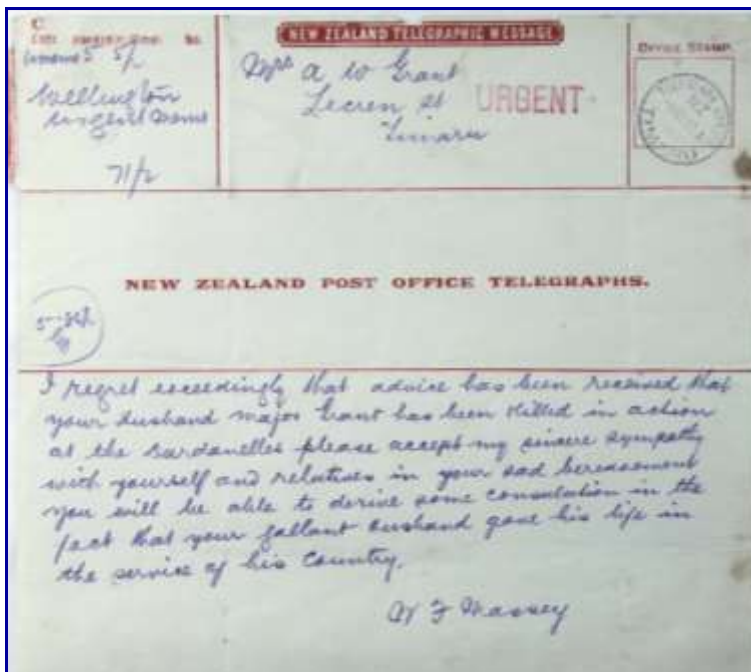 C.
NEW ZEALAND TELEGRAPHIC MESSAGE
OFFICE STAMP.
Wellington
urgent
Mrs A W Grant
Lecren St
Timaru
URGENT
NEW ZEALAND POST OFFICE TELEGRAPHS.
I regret exceedingly that advice has been received that
your husband major Grant has been killed in action
at the Dardanelles please accept my sincere sympathy
with yourself and relatives in your sad bereavement
you will be able to derive some consolation in the
fact that your gallant husband gave his life in
the service of his country.
W F Massey